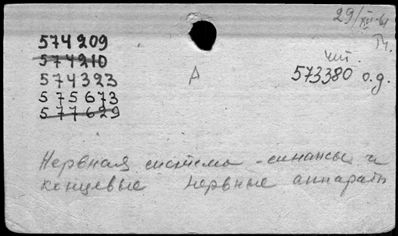 29/XII-61
574209
574210
574323
575673
577629
А
чит.
573380 о.д.
Нервная система - синапсы и
концевые нервные аппараты